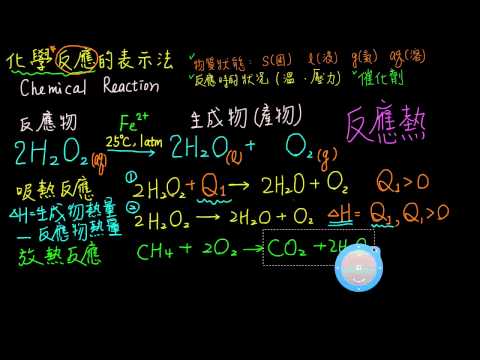 化學反應的表示法
Chemical Reaction
✓物質狀態: S(固) l(液) g(氣) aq(溶)
✓反應時的狀況(溫.壓力) ✓催化劑
反應物 Fe²⁺ 生成物(產物) 反應熱
2H₂O₂(aq) 25°C, 1atm → 2H₂O(l) + O₂(g)
吸熱反應 ① 2H₂O₂ + Q₁ → 2H₂O + O₂ Q₁>0
△H=生成物熱量 ② 2H₂O₂ → 2H₂O + O₂ △H = Q₁, Q₁>0
－反應物熱量
放熱反應 CH₄ + 2O₂ → CO₂ + 2H₂O